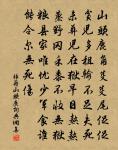 山頭鹿角芟芟尾促促
貧兒多租輸不足夫死
未葬兒在獄旱日熬熬
蒸野岡禾黍不收無獄
糧縣家唯憂少軍食誰
能令爾無死傷